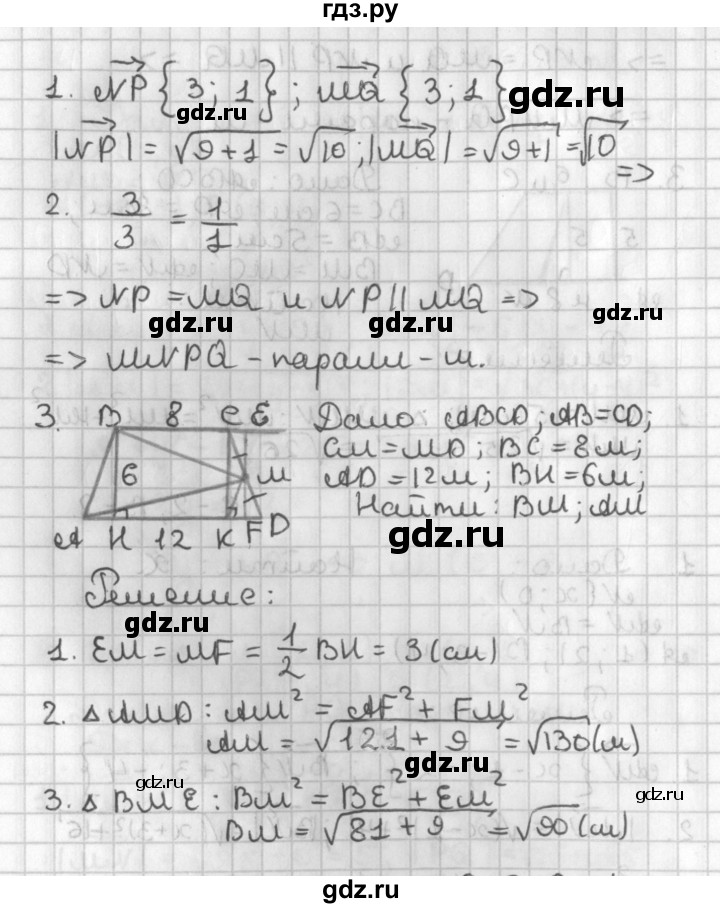 гдз.ру
1. NP {3; 1}; MQ {3; 1}
gdz.ru gdz.ru
|NP| = √9+1 = √10; |MQ| = √9+1 = √10 =>
2. 3/3 = 1/1
=> NP = MQ и NP || MQ =>
gdz.ru gdz.ru gdz.ru
=> MNPQ - паралл-м.
3. B 8 C E Дано ABCD; AB=CD;
CM = MD; BC = 8м;
6 M AD = 12м; BH = 6м;
Найти: BM; AM
A H 12 K F D gdz.ru
Решение:
gdz.ru
1. EM = MF = 1/2 BH = 3 (см)
2. △ AMD: AM² = AF² + FM²
AM = √121 + 9 = √130 (м)
gdz.ru gdz.ru
3. △ BME: BM² = BE² + EM²
gdz.ru
BM = √81 + 9 = √90 (см)
gdz.ru